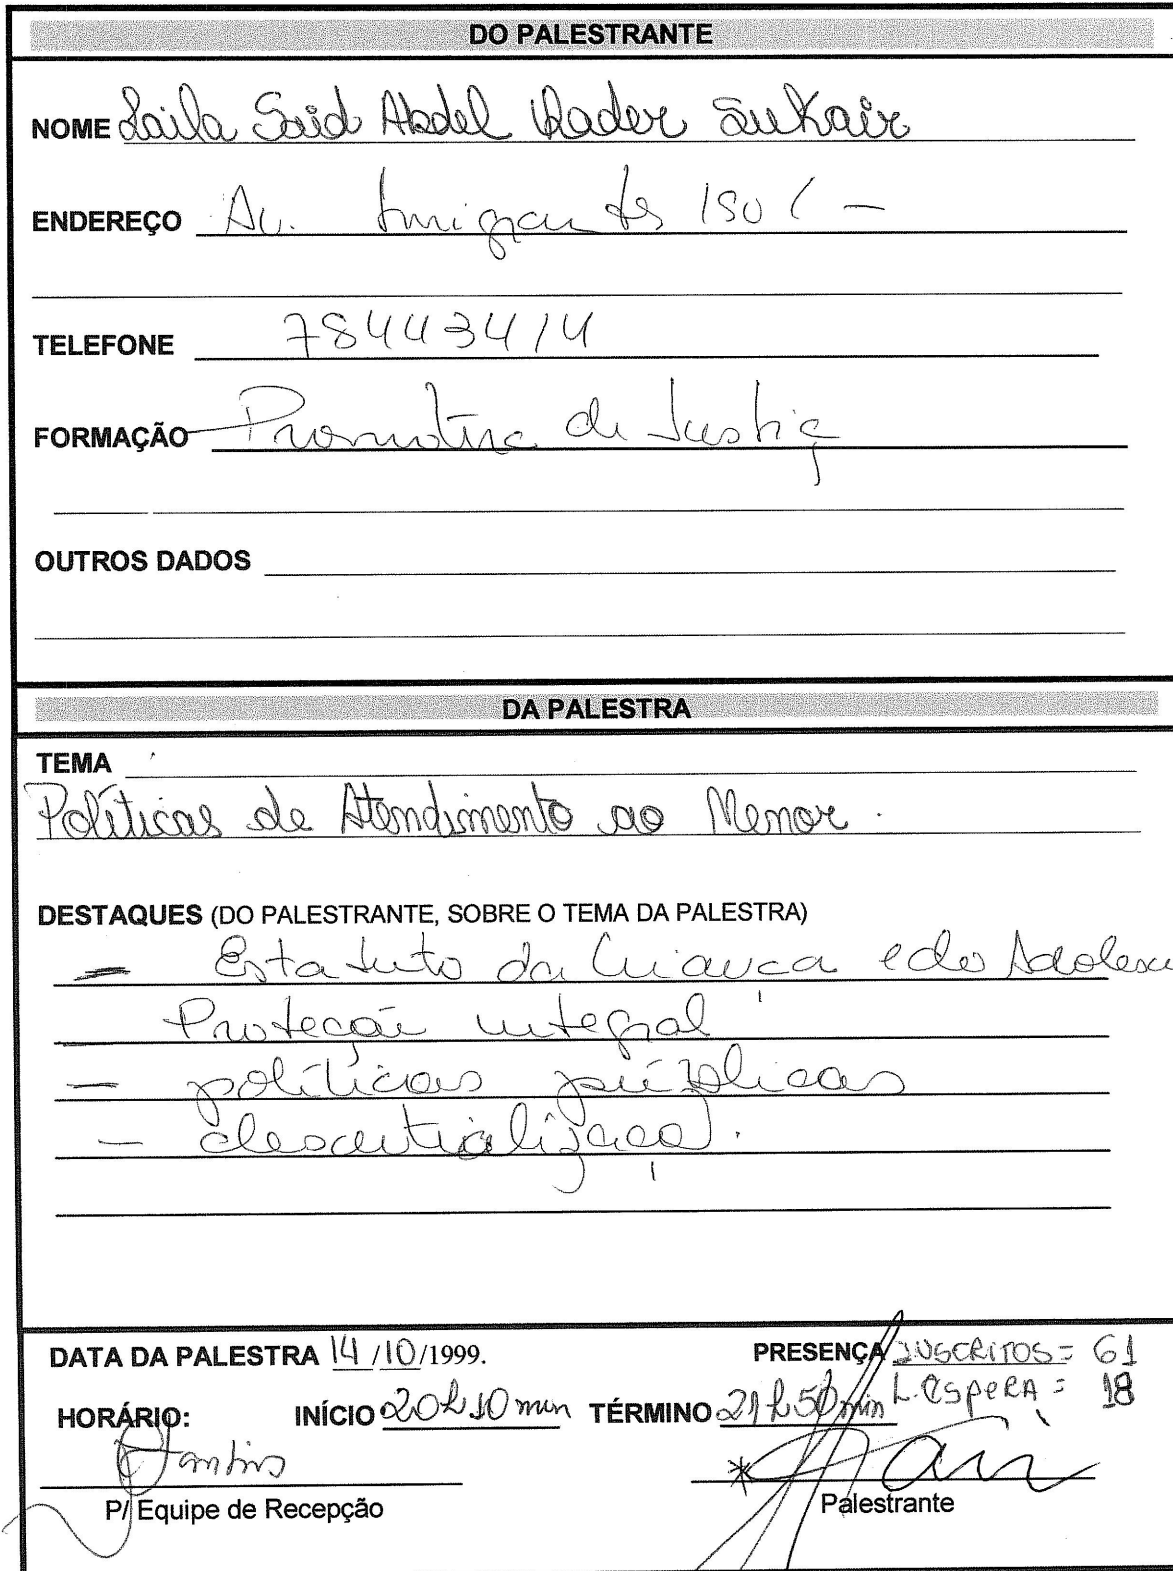 DO PALESTRANTE
NOME Laila Said Abdel Qader Sukair
ENDEREÇO Av. Imigrantes 1501 -
TELEFONE 78443414
FORMAÇÃO Promotora de Justiça
OUTROS DADOS
DA PALESTRA
TEMA
Políticas de Atendimento ao Menor.
DESTAQUES (DO PALESTRANTE, SOBRE O TEMA DA PALESTRA)
- Estatuto da Criança e do Adolesc
Proteção integral
- políticas públicas
- descentralização.
DATA DA PALESTRA 14/10/1999. PRESENÇA INSCRITOS = 61
L. ESPERA = 18
HORÁRIO: INÍCIO 20h10min TÉRMINO 21h50min
P/ Equipe de Recepção
* Palestrante